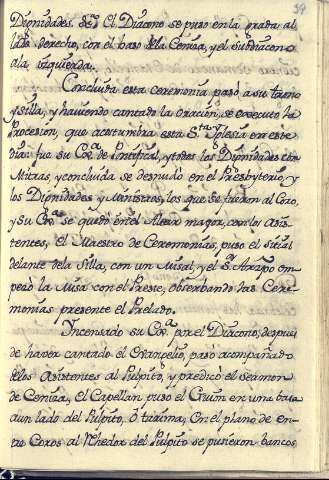 39
Dignidades. &c.ª El Diacono se puso en la grada al
lado derecho, con el baso de la Ceniza, y el subdiacono
a la izquierda.
Concluida esta ceremonia pasó a su trono
y silla, y haviendo cantado la Oración, se executó la
Procesion, que acostumbra esta S.ta Yglesia en este
dia: fue su Ex.ª de Pontifical, y todos los Dignidades con
Mitras, y concluida se desnudó en el Presbyterio, y
los Dignidades y Ministros, los que se fueron al Coro,
y su Ex.ª se quedó en el Altar mayor, con los Asis-
tentes, el Maestro de Ceremonias, puso el sitial
delante de la silla, con un Misal, y el S.r em-
pezó la Misa con el Preste, observando las Cere-
monias presente el Prelado.
Incensado su Ex.ª por el Diacono, despues
de haver cantado el Evangelio, pasó acompañado
de los Asistentes al Pulpito, y predicó el sermon
de Ceniza, el Capellan puso el Guion en una basa
a un lado del Pulpito, ó tarima; En el plano de en-
tre Coros al rededor del Pulpito se pusieron bancos